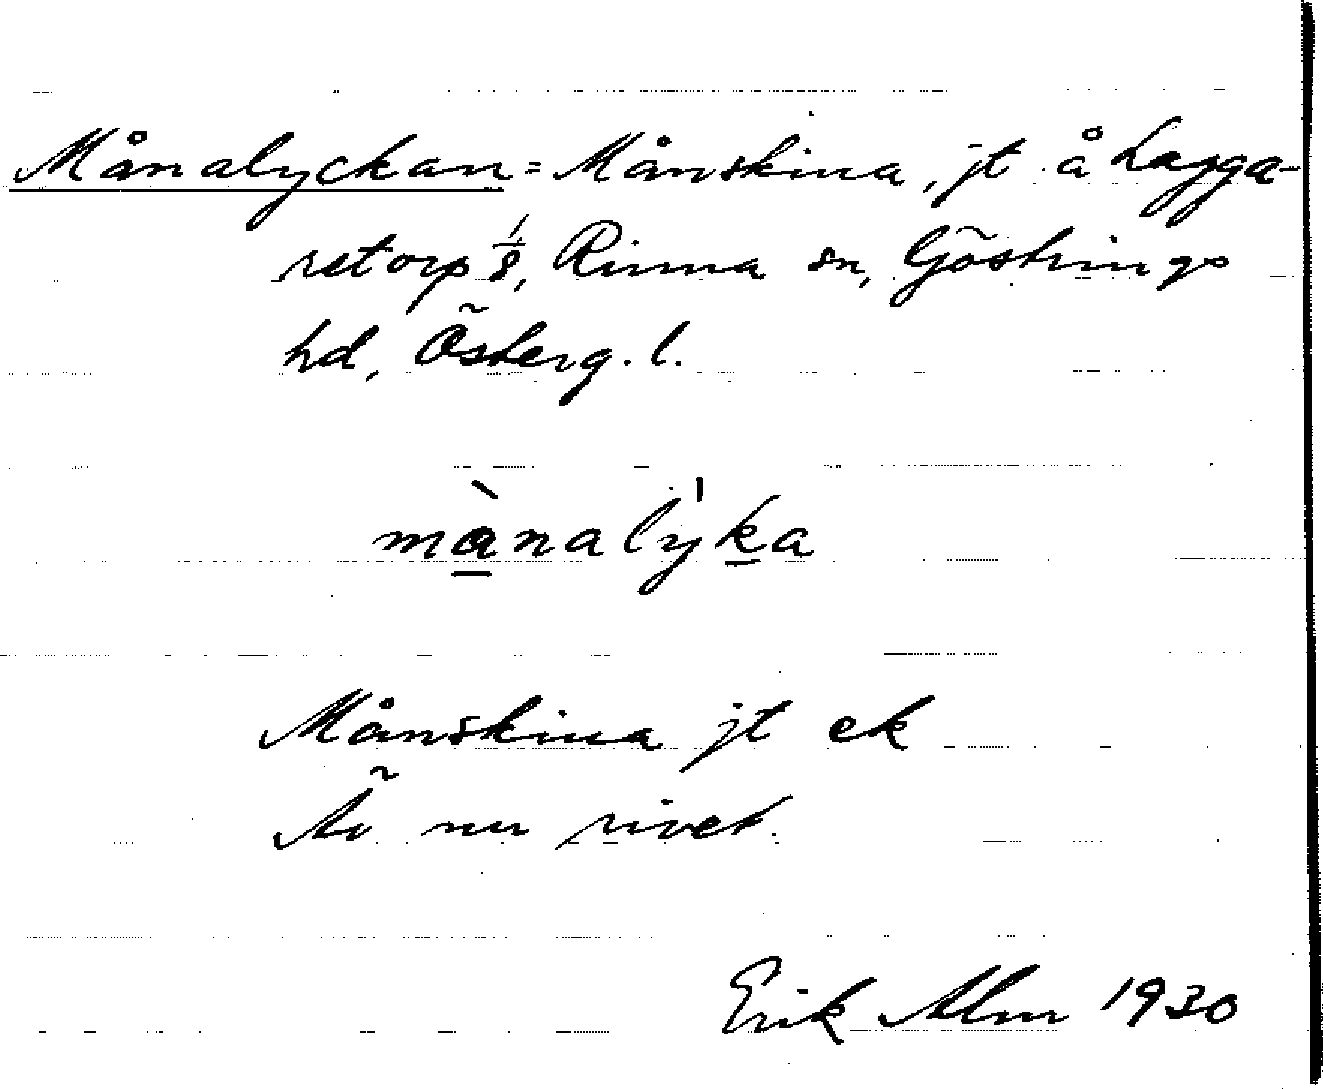 Månalyckan = Månskina, jt å Lagga-
retorp 1/8, Rinna sn, Göstrings
hd, Österg. l.
mànalýka
Månskina jt ek
Är nu rivet.
Erik Alm 1930